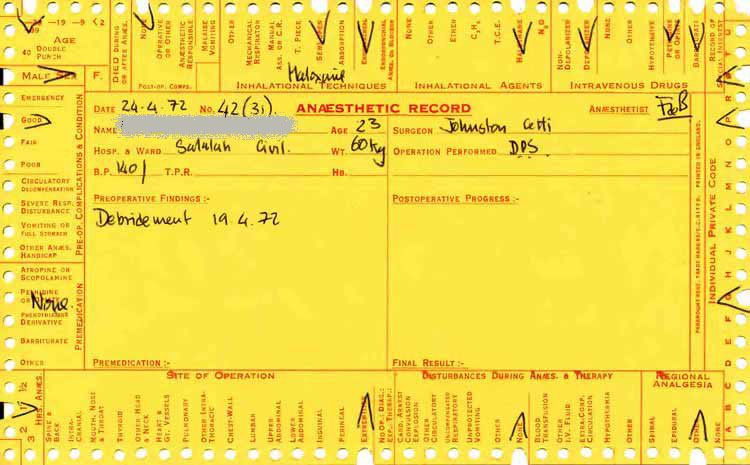 -39 -19 -9 < 2
99
AGE
40 DOUBLE
PUNCH
MALE SEX F.
DIED DURING
OR AFTER ANÆS.
NONE
OPERATIVE
OR OTHER
ANÆSTHETIC
RESPONSIBLE
MALAISE
VOMITING
POST-OP. COMPS.
OTHER
MECHANICAL
RESPIRATOR
MANUAL
ASS. OR C.R.
T. PIECE
ABSORPTION
ENDOTRACHEAL
ENDOBRONCHIAL
ANÆS. OR BLOCKER
INHALATIONAL TECHNIQUES
Haloxaire
NONE
OTHER
ETHER
C₃H₆
T.C.E.
HALOTHANE
N₂O
INHALATIONAL AGENTS
NON-
DEPOLARIZER
DEPOLARIZER
NONE
OTHER
HYPOTENSIVE
PETHIDINE
OR OPIATE
BARBITURATE
INTRAVENOUS DRUGS
RECORD OF
SPECIAL INTEREST
EMERGENCY
GOOD
FAIR
POOR
CIRCULATORY
DECOMPENSATION
SEVERE RESP.
DISTURBANCE
VOMITING OR
FULL STOMACH
OTHER ANÆS.
HANDICAP
PRE-OP. COMPLICATIONS & CONDITION
ATROPINE OR
SCOPOLAMINE
PETHIDINE
OR OPIATE
None
PHENOTHIAZINE
DERIVATIVE
BARBITURATE
OTHER
PREMEDICATION
DATE 24.4.72 NO. 42(31). ANÆSTHETIC RECORD ANÆSTHETIST FzB
NAME AGE 23 SURGEON Johnston Cetti
HOSP. & WARD Salalah Civil. WT. 60kg OPERATION PERFORMED DPS
B.P. 140/ T.P.R. HB.
PREOPERATIVE FINDINGS :- POSTOPERATIVE PROGRESS :-
Debridement 19.4.72
PREMEDICATION :- FINAL RESULT :-
INDIVIDUAL PRIVATE CODE
PARAMOUNT REGD. TRADE MARK
PRINTED IN ENGLAND
A B C D E F G H J K L M N O P R S T
HRS. ANÆS.
3 2 1 ½
SITE OF OPERATION
SPINE &
BACK
INTRA-
CRANIAL
MOUTH, NOSE
& THROAT
THYROID
OTHER HEAD
& NECK
HEART &
GT. VESSELS
PULMONARY
OTHER INTRA-
THORACIC
CHEST-WALL
LUMBAR
UPPER
ABDOMINAL
LOWER
ABDOMINAL
INGUINAL
PERINEAL
EXTREMITIES
NO OP.: DIAG.:
DISTURBANCES DURING ANÆS. & THERAPY
CARD. ARREST
CONVULSION
EXPLOSION
OTHER
CIRCULATORY
UNCOMPENSATED
RESPIRATORY
UNPROTECTED
VOMITING
OTHER
NONE
BLOOD
TRANSFUSION
OTHER
I.V. FLUID
EXTRA-CORP.
CIRCULATION
HYPOTHERMIA
OTHER
REGIONAL
ANALGESIA
SPINAL
EPIDURAL
NONE
OTHER